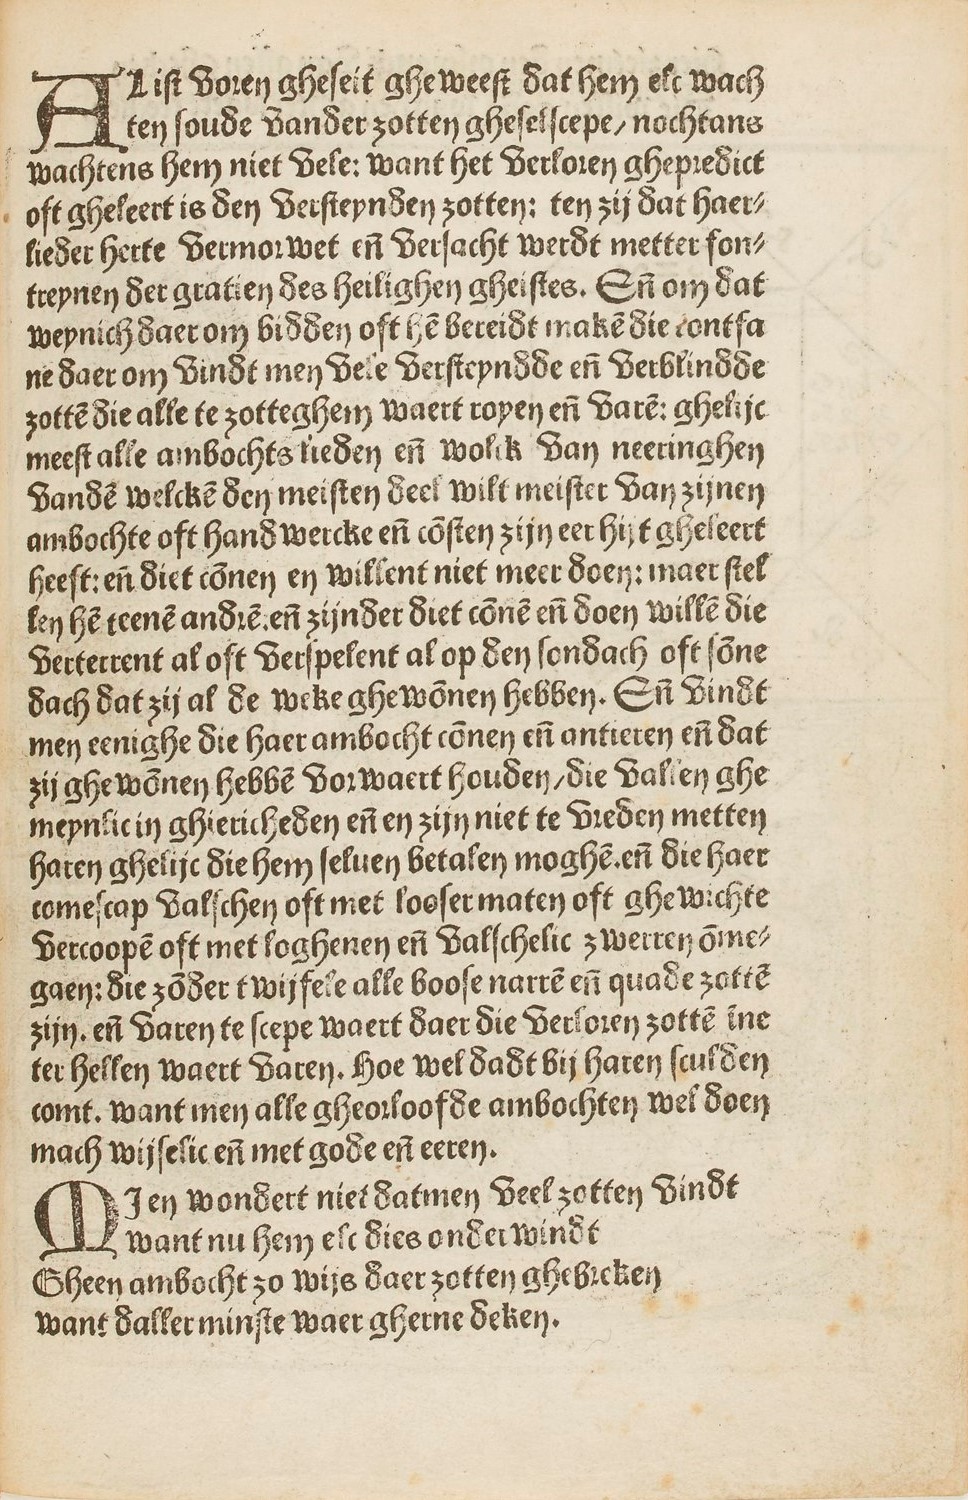 AList voren gheseit gheweest dat hem elc wach
ten soude vander zotten gheselscepe/ nochtans
wachtens hem niet vele: want het verloren ghepredict
oft gheleert is den versteynden zotten: ten zij dat haer⸗
lieder herte vermorwet en̄ versacht werdt metter fon⸗
treynen der gratien des heilighen gheistes. En̄ om dat
weynich daer om bidden oft hē bereidt makē die contfa
ne daer om vindt men vele versteyndde en̄ verblindde
zottē die alle te zotteghem waert royen en̄ varē: ghelijc
meest alle ambochts lieden en̄ wolck van neeringhen
vandē welckē den meisten deel wilt meister van zijnen
ambochte oft handwercke en̄ cōsten zijn eer hijt gheleert
heeft: en̄ diet cōnen en willent niet meer doen: maer stel
len hē teenē andrē. en̄ zijnder diet cōnē en̄ doen willē die
verterrent al oft verspelent al op den sondach oft sōne
dach dat zij al de weke ghewōnen hebben. En̄ vindt
men eenighe die haer ambocht cōnen en̄ antieren en̄ dat
zij ghewōnen hebbē vorwaert houden/die vallen ghe
meynlic in ghiericheden en̄ en zijn niet te vreden metten
haren ghelijc die hem seluen betalen moghē. en̄ die haer
comescap valschen oft met looser maten oft ghewichte
vercoopē oft met loghenen en̄ valschelic zwerren ōme⸗
gaen: die zōder twijfele alle boose narrē en̄ quade zottē
zijn. en̄ varen te scepe waert daer die verloren zottē īne
ter hellen waert varen. Hoe wel dadt bij haren sculden
comt. want men alle gheorloofde ambochten wel doen
mach wijselic en̄ met gode en̄ eeren.
MIen wondert niet datmen veel zotten vindt
want nu hem elc dies onderwindt
Gheen ambocht zo wijs daer zotten ghebreken
want daller minste waer gherne deken.